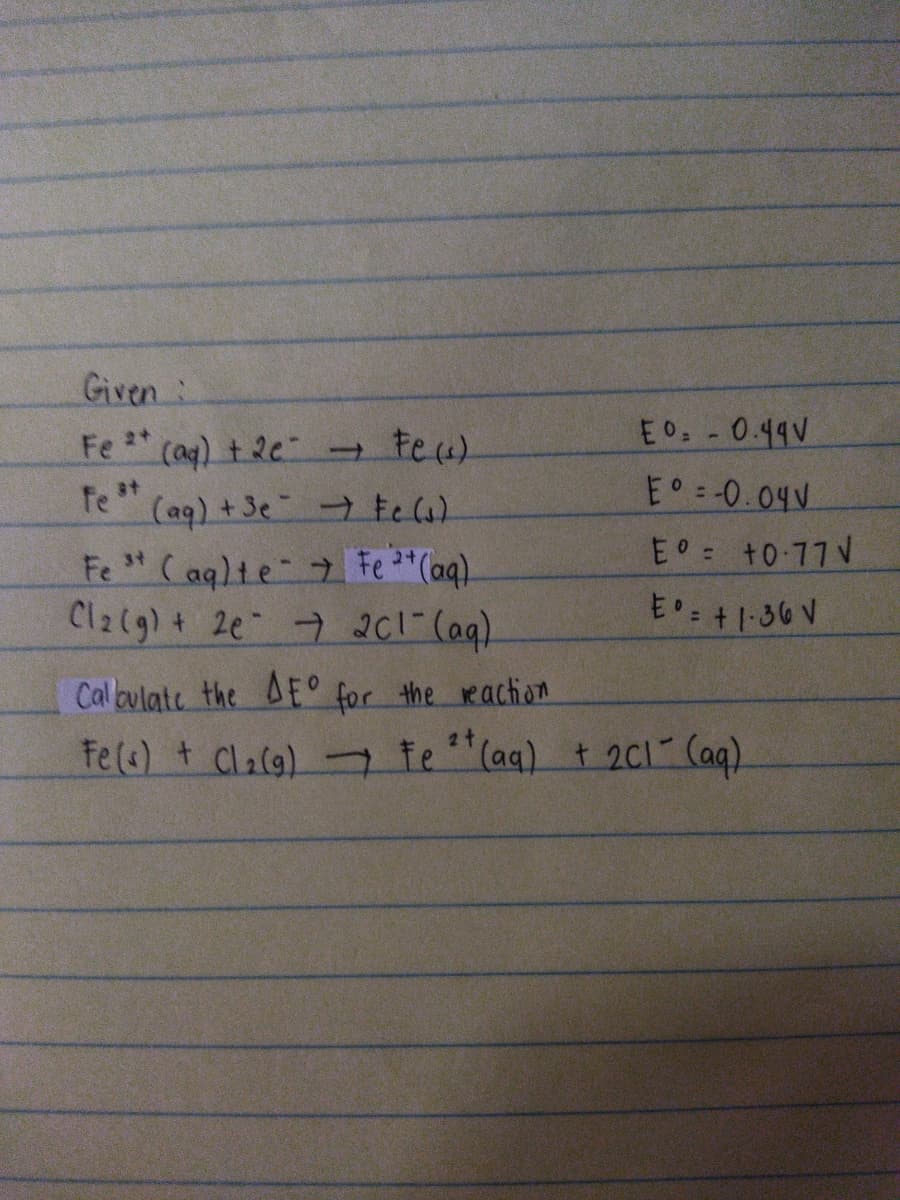 Given :
Fe ²⁺ (aq) + 2e⁻ → Fe (s) E⁰ = - 0.44V
Fe ³⁺ (aq) + 3e⁻ → Fe (s) E⁰ = -0.04V
Fe ³⁺ (aq) + e⁻ → Fe ²⁺ (aq) E⁰ = +0.77V
Cl₂ (g) + 2e⁻ → 2Cl⁻ (aq) E⁰ = +1.36 V
Calculate the ΔE⁰ for the reaction
Fe(s) + Cl₂(g) → Fe ²⁺ (aq) + 2Cl⁻ (aq)